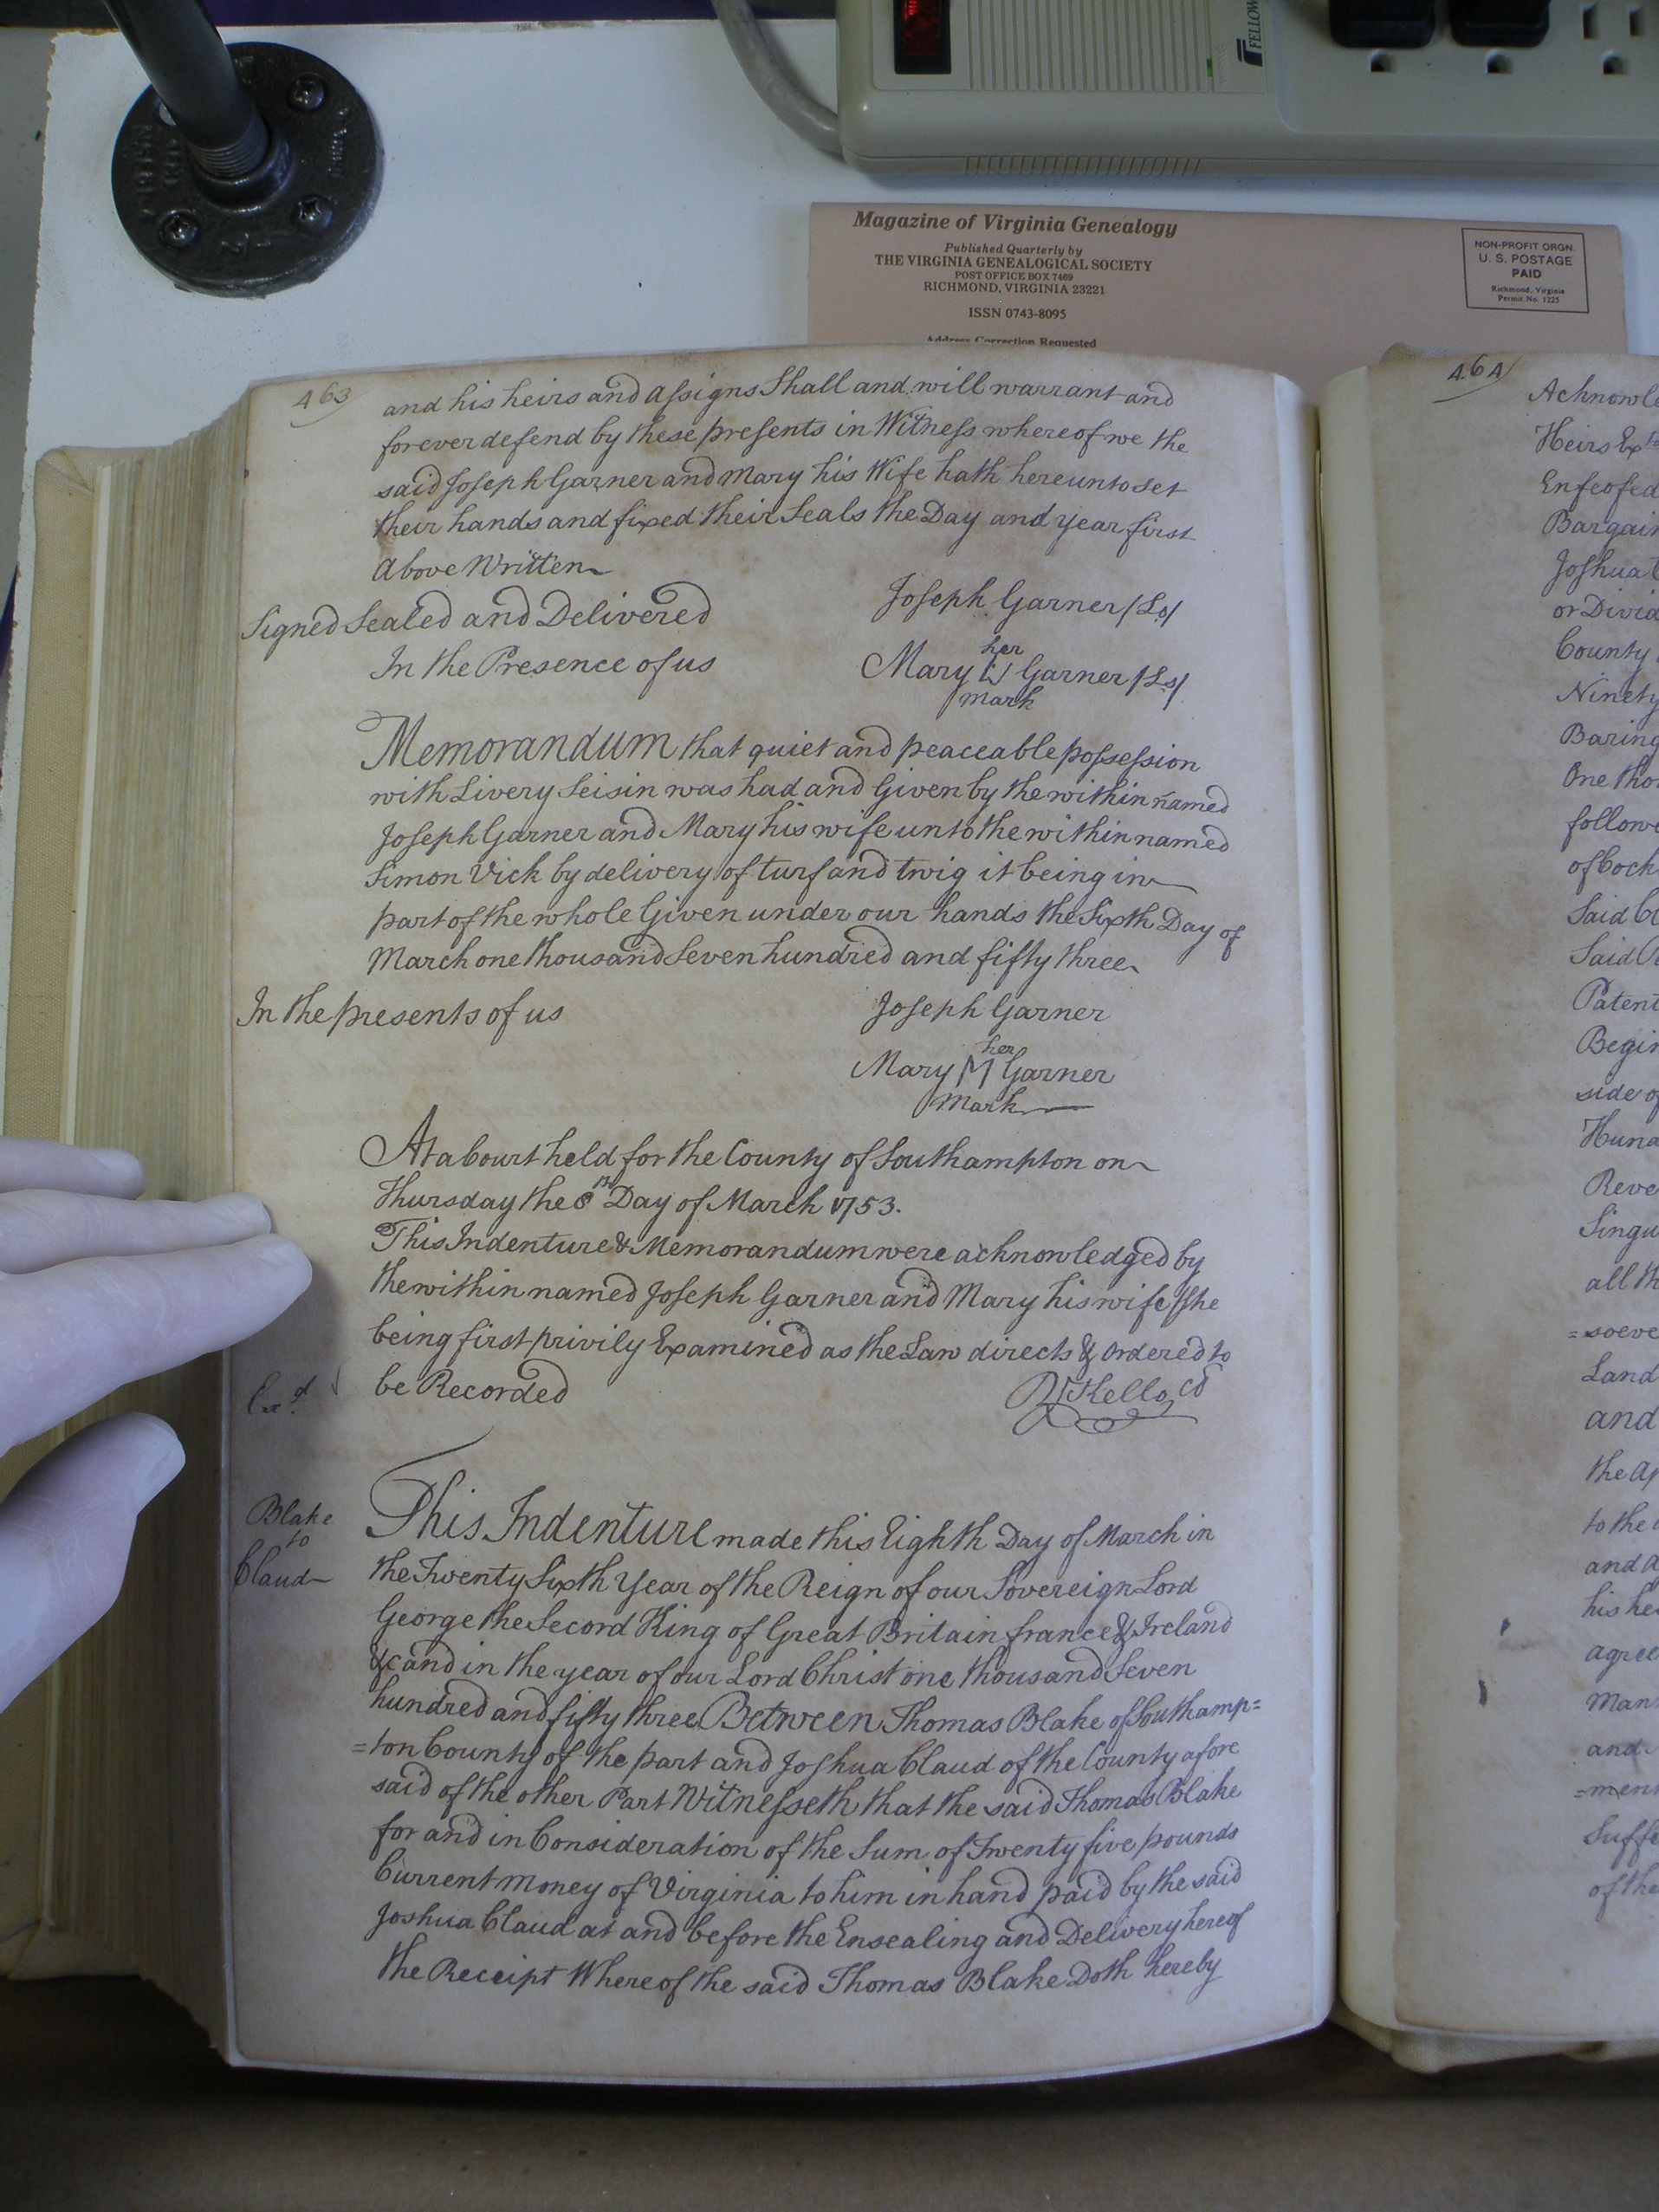 FELLOW
Magazine of Virginia Genealogy
Published Quarterly by
THE VIRGINIA GENEALOGICAL SOCIETY
POST OFFICE BOX 7469
RICHMOND, VIRGINIA 23221
ISSN 0743-8095
Address Correction Requested
NON-PROFIT ORGN.
U. S. POSTAGE
PAID
Richmond, Virginia
Permit No. 1225
463
and his heirs and assigns Shall and will warrant and
forever defend by these presents in Witness whereof we the
said Joseph Garner and Mary his Wife hath hereunto set
their hands and fixed their Seals the Day and year first
above Written
Signed Sealed and Delivered
In the Presence of us
Joseph Garner /Ls/
her
Mary W Garner /Ls/
mark
Memorandum that quiet and peaceable possession
with Livery Seisin was had and Given by the within named
Joseph Garner and Mary his wife unto the within named
Simon Vick by delivery of turf and twig it being in
part of the whole Given under our hands the Sixth Day of
March one thousand Seven hundred and fifty three
In the presents of us
Joseph Garner
her
Mary M Garner
mark
At a Court held for the County of Southampton on
Thursday the 8th Day of March 1753.
This Indenture & Memorandum were acknowledged by
the within named Joseph Garner and Mary his wife she
being first privily Examined as the Law directs & Ordered to
be Recorded
Exd
Blake
to
Claud
This Indenture made this Eighth Day of March in
the Twenty Sixth Year of the Reign of our Sovereign Lord
George the Second King of Great Britain france & Ireland
&c and in the year of our Lord Christ one thousand Seven
hundred and fifty three Between Thomas Blake of Southamp=
=ton County of the part and Joshua Claud of the County afore
said of the other Part Witnesseth that the said Thomas Blake
for and in Consideration of the Sum of Twenty five pounds
Current money of Virginia to him in hand paid by the said
Joshua Claud at and before the Ensealing and Delivery hereof
the Receipt Whereof the said Thomas Blake Doth hereby
464
Acknowle
Heirs Exto
Enfeofed
Bargain
Joshua C
or Divid
County
Ninety
Baring
One thou
followe
of Cock
Said Cl
Said
Patent
Begin
side of
Hund
Reve
Singu
all th
=soeve
Land
and
the ap
to the
and a
his hei
agree
Mann
and
=ment
Suffe
of the